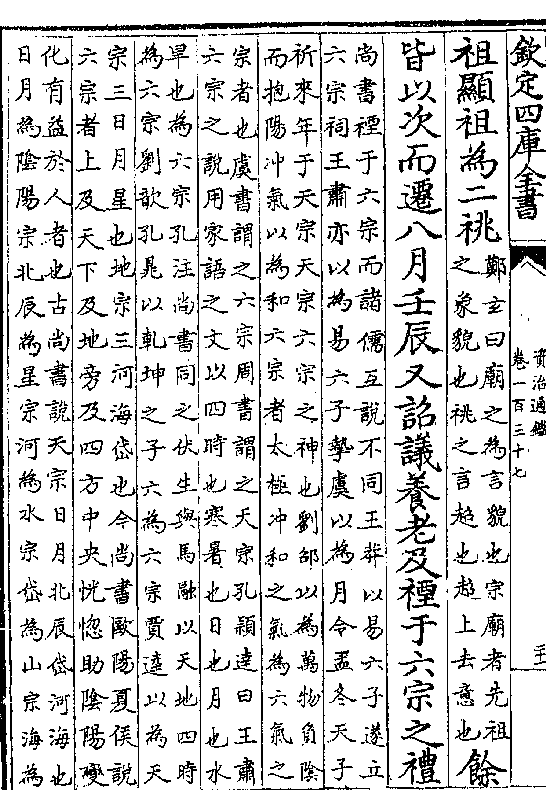 欽定四庫全書
資治通鑑
卷一百三十七
祖顯祖為二祧
鄭玄曰廟之為言貌也宗廟者先祖
之象貌也祧之言超也超上去意也
餘
皆以次而遷八月壬辰又詔議養老及禋于六宗之禮
尚書禋于六宗而諸儒互說不同王莽以易六子遂立
六宗祠王肅亦以為易六子摯虞以為月令孟冬天子
祈來年于天宗天宗六宗之神也劉邵以為萬物負陰
而抱陽沖氣以為和六宗者太極沖和之氣為六氣之
宗者也虞書謂之六宗周書謂之天宗孔穎達曰王肅
六宗之說用家語之文以四時也寒暑也日也月也水
旱也為六宗孔注尚書同之伏生與馬融以天地四時
為六宗劉歆孔晁以乹坤之子六為六宗賈逵以為天
宗三日月星也地宗三河海岱也今尚書歐陽夏侯說
六宗者上及天下及地旁及四方中央恍惚助陰陽變
化有益於人者也古尚書說天宗日月北辰岱河海也
日月為陰陽宗北辰為星宗河為水宗岱為山宗海為